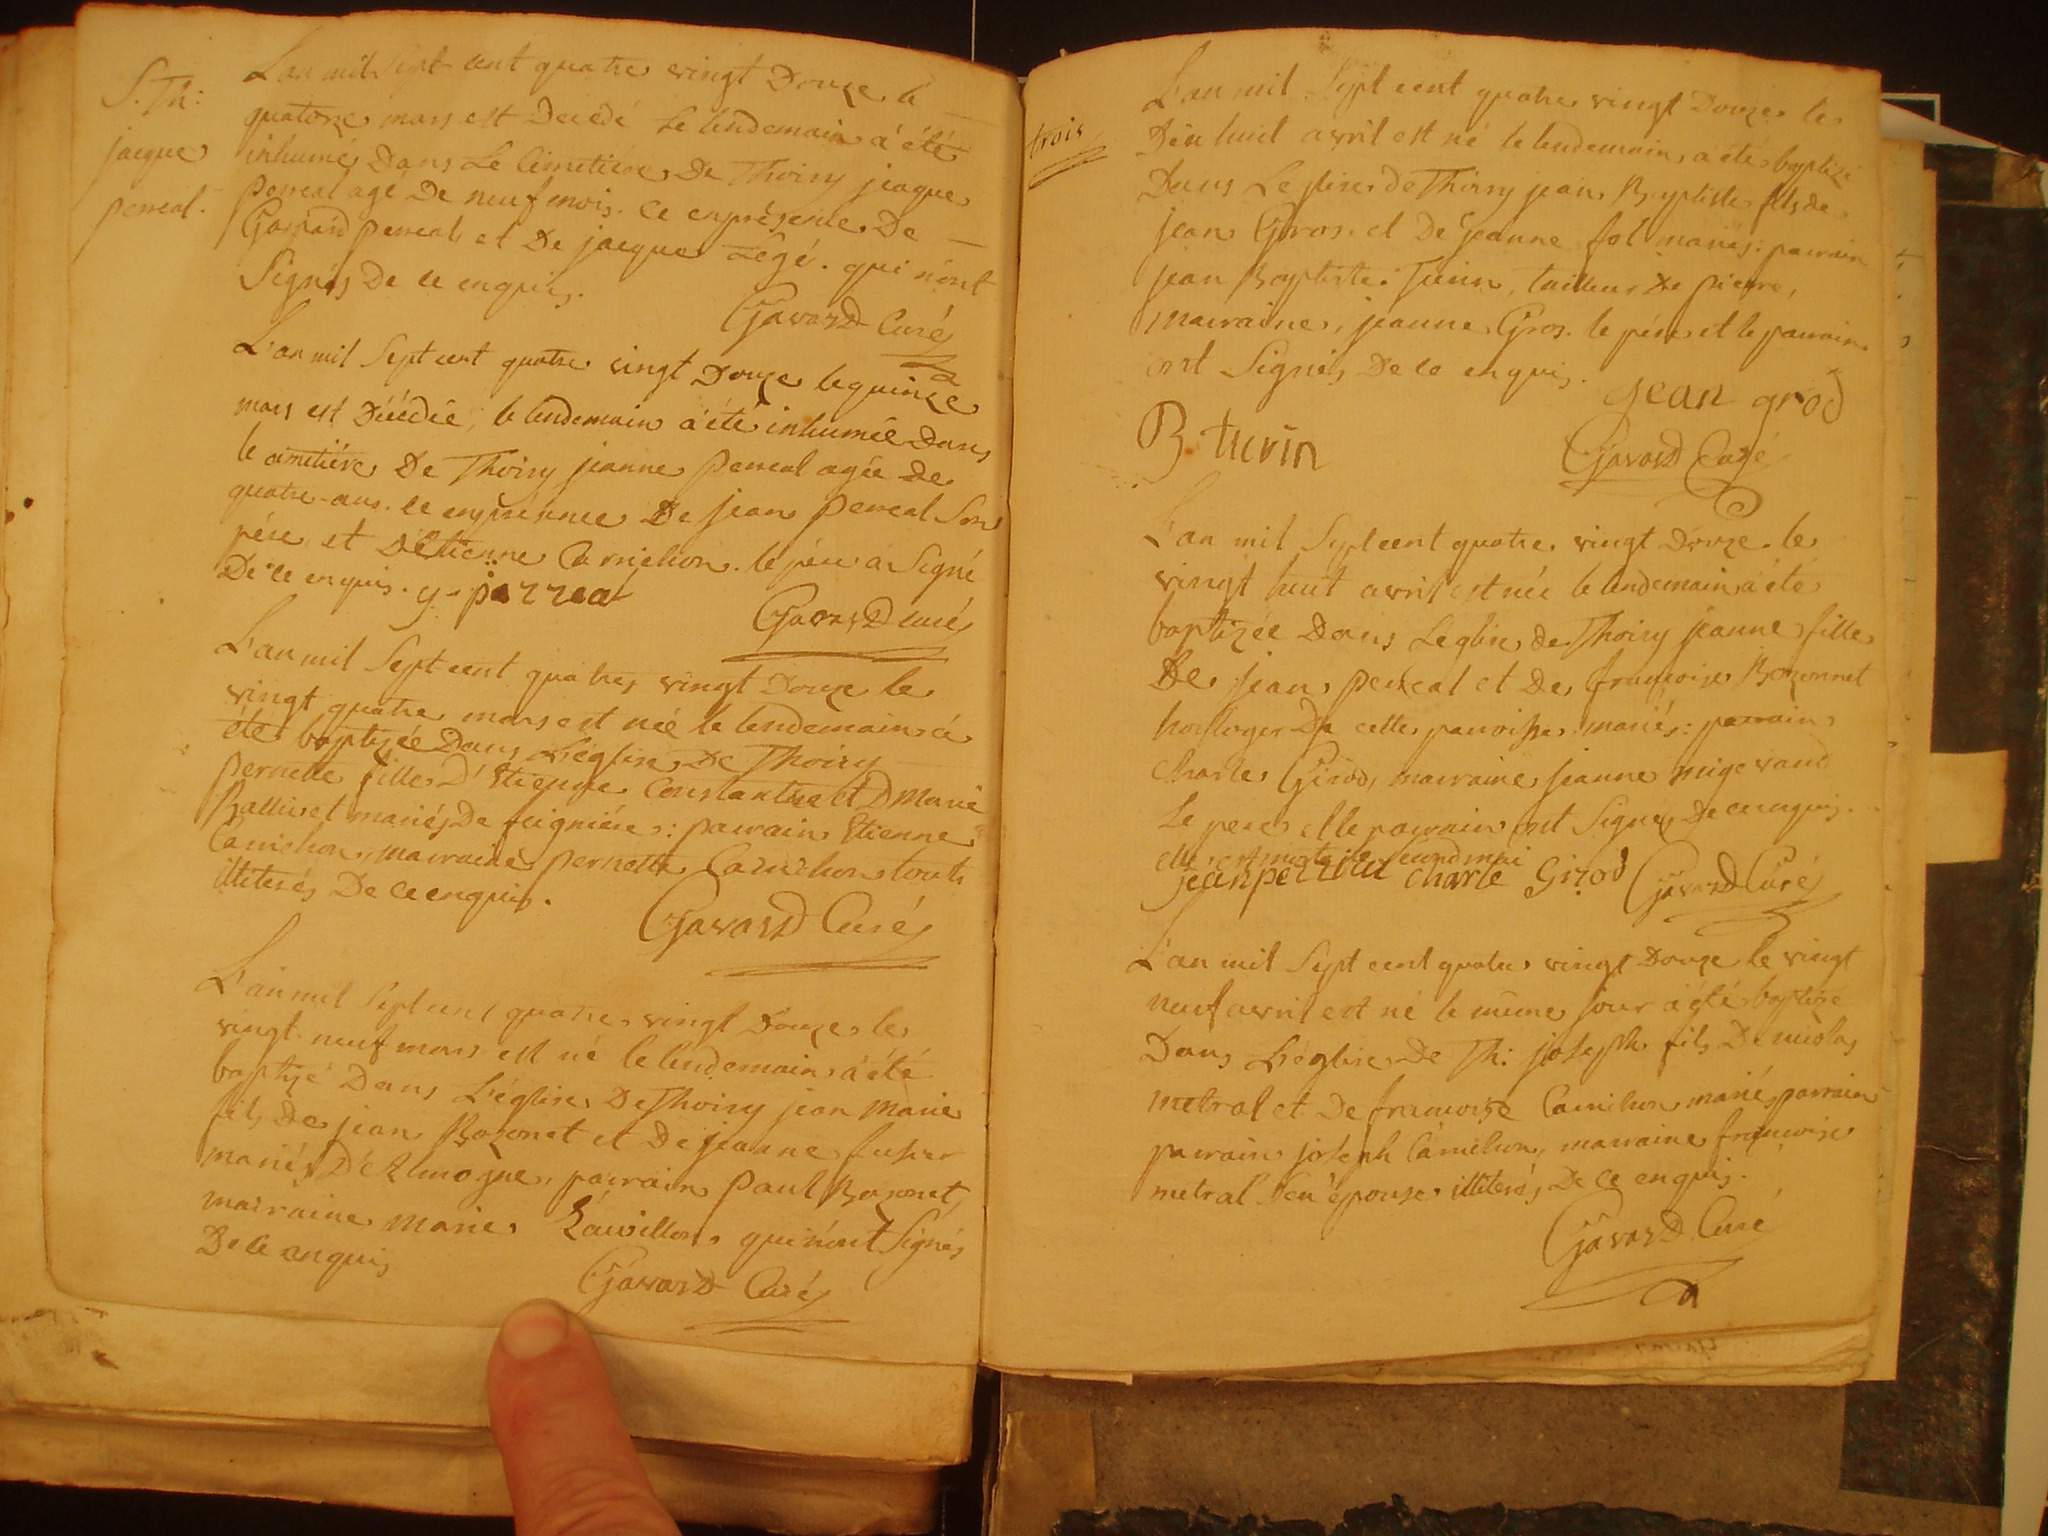 S. Th:
jacque
perreal.
L'an mil Sept cent quatre vingt Douze le
quatorze mars est Decédé Le lendemain a été
inhumé Dans Le Cimetiere De Thoiry jacque
perreal agé De neuf mois. ce en présence De
Gaspard perreal et De jacque Légé. qui n'ont
Signés De ce enquis.
Gavard Curé
L'an mil Sept cent quatre vingt Douze le quinze
mars est Décédée, le lendemain a été inhumée Dans
le cimetiére De Thoiry jeanne perreal agée de
quatre ans. ce en présence De jean perreal Son
pére et D'étienne Cornichon. le pére a Signé
De ce enquis. y - perreal
Gavard curé
L'an mil Sept cent quatre vingt Douze le
vingt quatre mars est née le lendemain a
été baptizée Dans L'église De Thoiry
pernette fille D'Etienne Constantin et D Marie
mariés De : parrain Etienne
Cornichon, marraine pernette Cornichon touts
illiterés De ce enquis.
Gavard Curé
L'an mil Sept cent quatre vingt Douze le
vingt neuf mars est né le lendemain a été
baptizé Dans L'église De Thoiry jean Marie
fils De jean Bozonet et De jeanne
mariés D'Allemogne, parrain paul Bozonet,
marraine marie qui n'ont Signés
De ce enquis
Gavard Curé
trois
L'an mil Sept cent quatre vingt Douze le
Dix huit avril est né le lendemain a été baptizé
Dans L'eglise de Thoiry jean Baptiste fils de
jean Gros et De jeanne fol mariés: parrain
jean Baptiste Turin, tailleur De pierre,
marraine jeanne Gros. le pére et le parrain
ont Signés De ce enquis.
jean grod
B. turin
Gavard Curé
L'an mil Sept cent quatre vingt Douze le
vingt huit avril est née le lendemain a été
baptizée Dans Leglise de Thoiry jeanne fille
De jean perreal et De françoise Bozonnet
horloger De cette parroisse mariés: parrain
charle Girod, marraine jeanne migerand
Le pere et le parrain ont Signés De ce enquis.
elle est morte le second mai
jean perreal charle Girod
Gavard Curé
L'an mil Sept cent quatre vingt Douze le vingt
neuf avril est né le même jour a été baptizé
Dans L'église De Th: joseph fils De nicolas
metral et De françoise Cornichon mariés, parrain
parrain joseph Cornichon, marraine françoise
metral Son épouse illiterés De ce enquis.
Gavard Curé